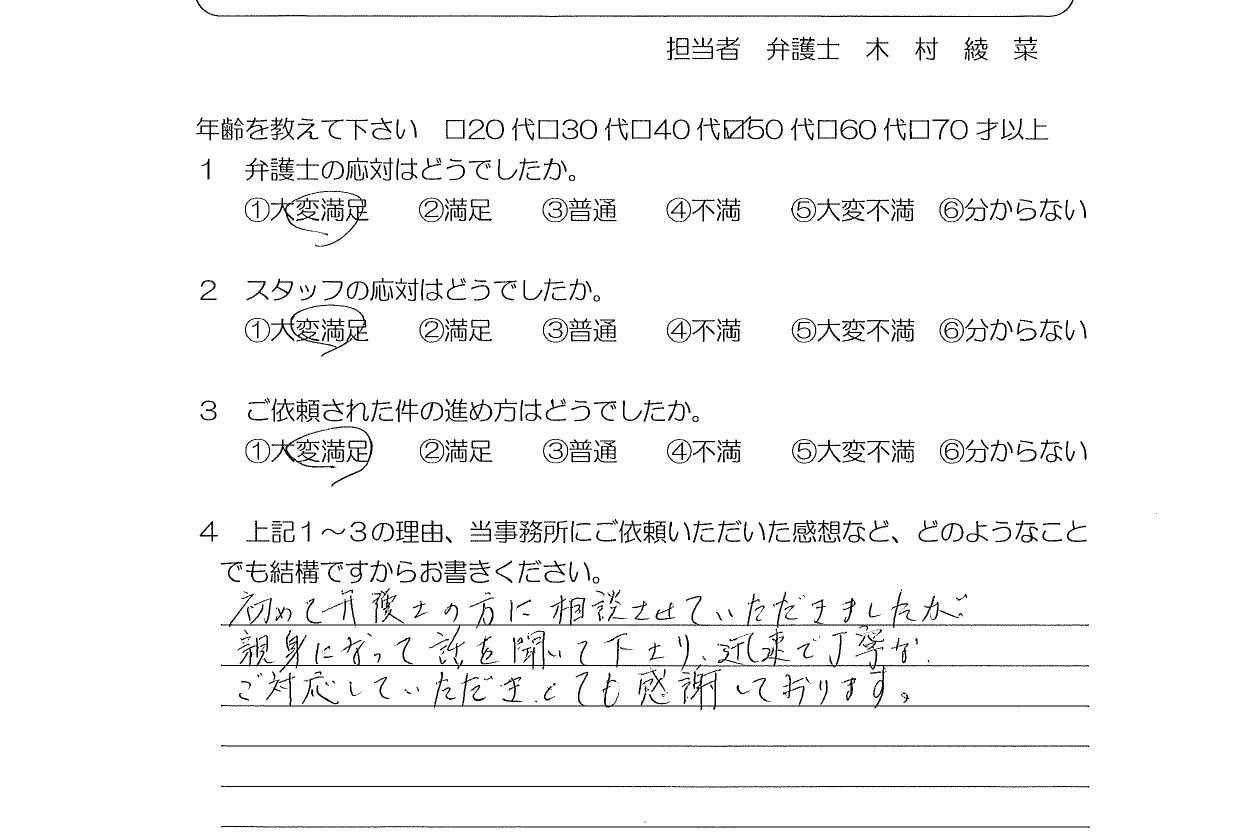 担当者　弁護士　木　村　綾　菜
年齢を教えて下さい　□20代□30代□40代☑50代□60代□70才以上
１　弁護士の応対はどうでしたか。
①大変満足　②満足　③普通　④不満　⑤大変不満　⑥分からない
２　スタッフの応対はどうでしたか。
①大変満足　②満足　③普通　④不満　⑤大変不満　⑥分からない
３　ご依頼された件の進め方はどうでしたか。
①大変満足　②満足　③普通　④不満　⑤大変不満　⑥分からない
４　上記１～３の理由、当事務所にご依頼いただいた感想など、どのようなこと
でも結構ですからお書きください。
初めて弁護士の方に相談させていただきましたが
親身になって話を聞いて下さり、迅速で丁寧な
ご対応していただき、とても感謝しております。